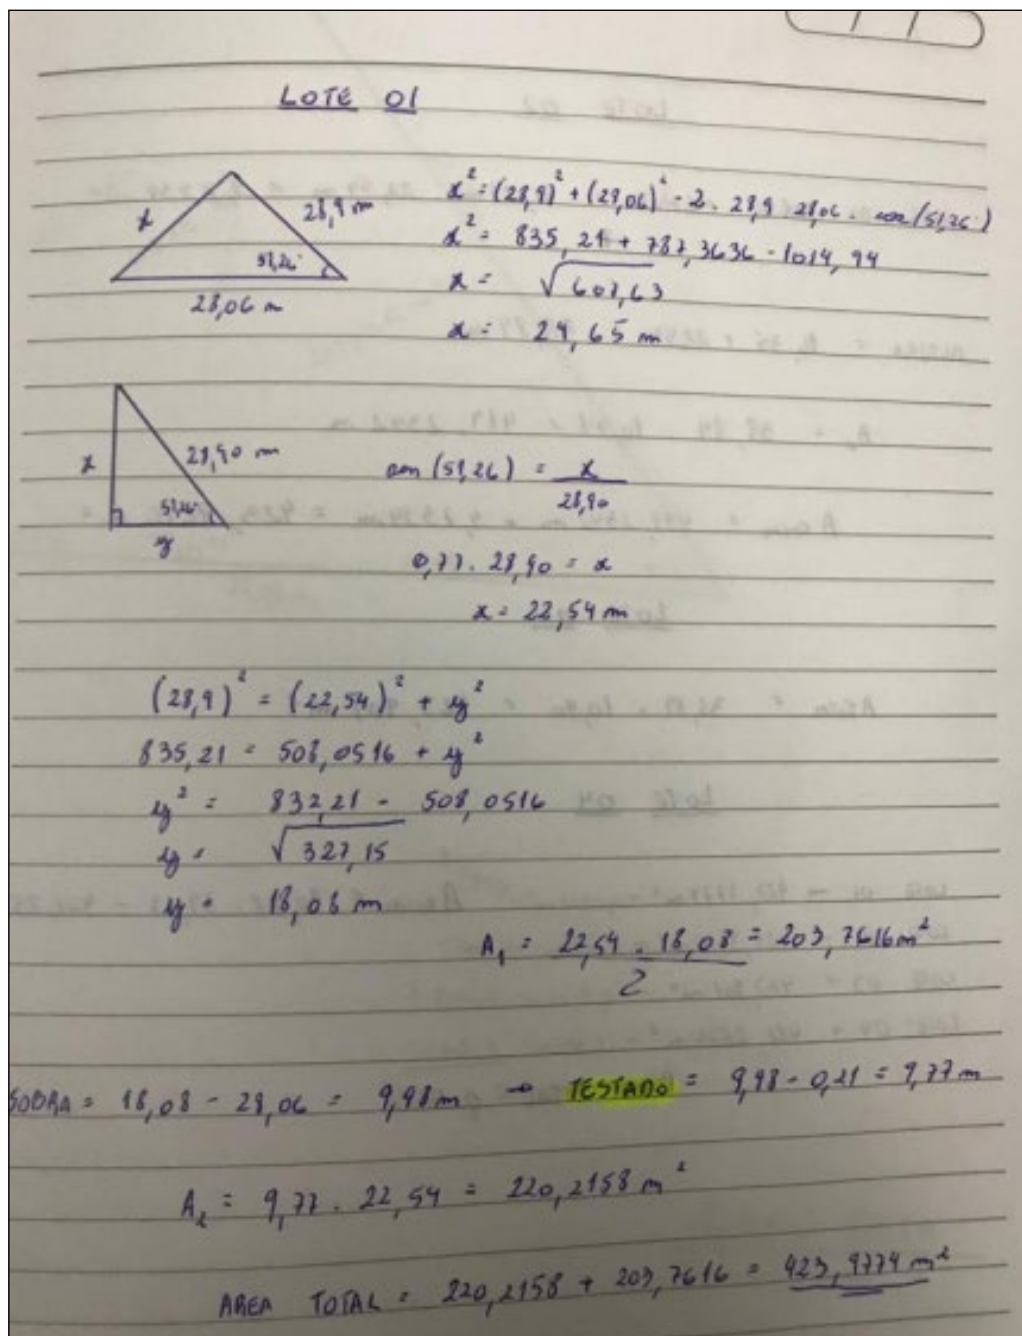 LOTE 01
x² = (28,9)² + (28,06)² - 2 . 28,9 28,06 . cos (51,26°)
x 28,9 m
x² = 835,21 + 787,3636 - 1014,94
51,26°
x = √607,63
28,06 m
x = 24,65 m
x 28,90 m
sen (51,26) = x / 28,90
51,26°
y
0,77 . 28,90 = x
x = 22,54 m
(28,9)² = (22,54)² + y²
835,21 = 508,0516 + y²
y² = 832,21 - 508,0516
y = √327,15
y = 18,08 m
A₁ = 22,54 . 18,08 / 2 = 203,7616 m²
SOBRA = 18,08 - 28,06 = 9,98 m → TESTADO = 9,98 - 0,21 = 9,77 m
A₂ = 9,77 . 22,54 = 220,2158 m²
AREA TOTAL = 220,2158 + 203,7616 = 423,9774 m²